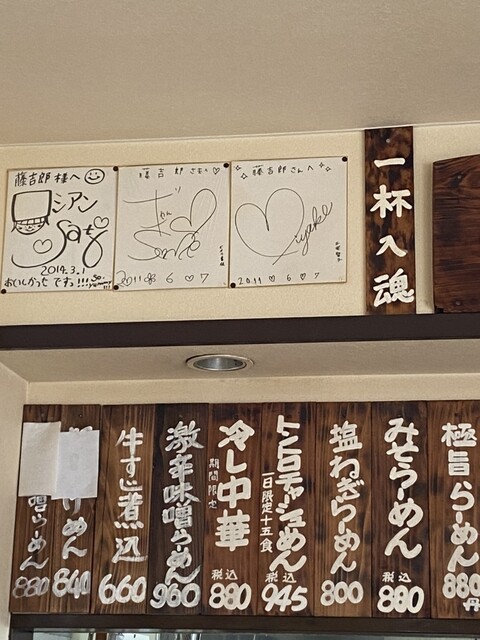 藤吉郎様へ
シアン
Saty
2014.3.1
おいしかったです!!!
so-yummy!!!
藤吉郎さんへ
2011 6 7
藤吉郎さんへ
2011.6.7
一杯入魂
極旨らーめん
880円
みそらーめん
税込
880
塩ねぎらーめん
800
トントロチャーシューめん
一日限定十五食
税込
945
冷し中華
期間限定
税込
880
激辛味噌らーめん
960
牛すじ煮込
660
けめん
840
噌らーめん
880